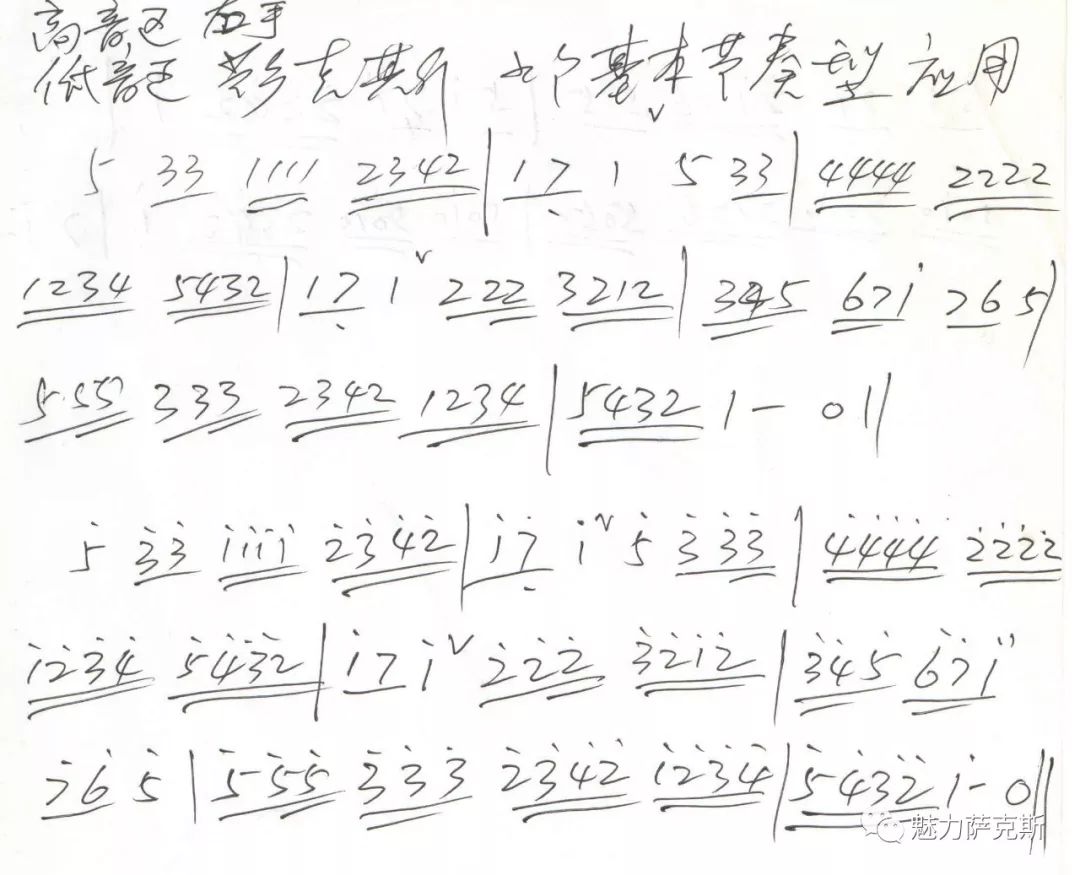 高音区 右手
低音区 七个基本节奏型应用
5 33 1111 2342 | 17̣ 1 ∨ 5 33 | 4444 2222
1234 5432 | 17̣ 1 ∨ 222 3212 | 345 671̇ 76 5 |
5·55 333 2342 1234 | 5432 1 - 0 ||
5̇ 3̇3̇ 1̇1̇1̇1̇ 2̇3̇4̇2̇ | 1̇7̣ 1̇ ∨ 5̇ 3̇3̇3̇ | 4̇4̇4̇4̇ 2̇2̇2̇2̇
1̇2̇3̇4̇ 5̇4̇3̇2̇ | 1̇7 1̇ ∨ 2̇2̇2̇ 3̇2̇1̇2̇ | 3̇4̇5̇ 6̇7̇1̈
7̇6̇ 5̇ | 5̇5̇5̇ 3̇3̇3̇ 2̇3̇4̇2̇ 1̇2̇3̇4̇ | 5̇4̇3̇2̇ 1̇ - 0 ||
魅力萨克斯